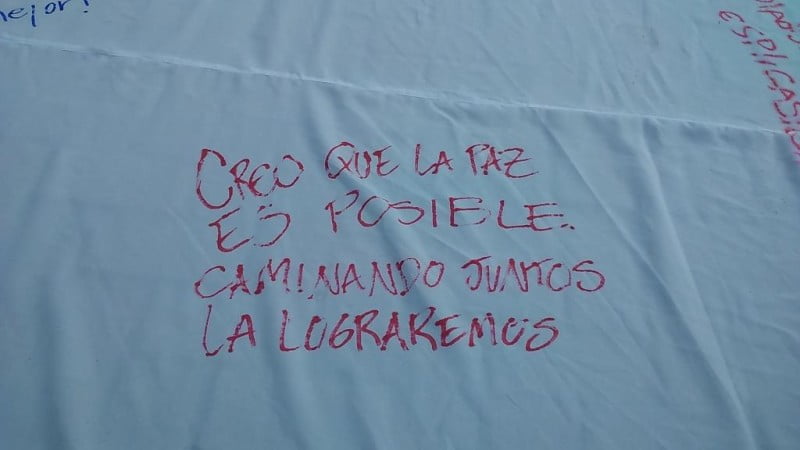 mejor!
CREO QUE LA PAZ
ES POSIBLE.
CAMINANDO JUNTOS
LA LOGRAREMOS